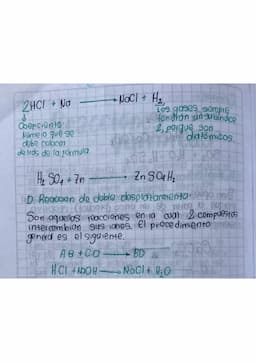 2HCl + Na → NaCl + H₂
↓
Coeficiente
número que se
debe colocar
detrás de la fórmula
Los gases siempre
tendrán un subíndice
2, porque son
diatómicos
H₂SO₄ + Zn → ZnSO₄H₂
D. Reacción de doble desplazamiento
Son aquellas reacciones en la cual 2 compuestos
intercambian sus iones. El procedimiento
general es el siguiente.
AB + CD → BD
HCl + NaOH → NaCl + H₂O